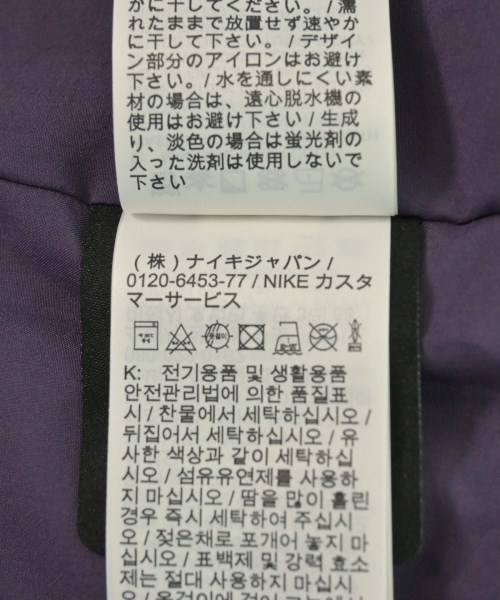 かに干してください。/ 濡
れたままで放置せず速やか
に干して下さい。/ デザイ
ン部分のアイロンはお避け
下さい。/ 水を通しにくい素
材の場合は、遠心脱水機の
使用はお避け下さい / 生成
り、淡色の場合は蛍光剤の
入った洗剤は使用しないで
下さい
(株) ナイキジャパン /
0120-6453-77 / NIKE カスタ
マーサービス
K: 전기용품 및 생활용품
안전관리법에 의한 품질표
시 / 찬물에서 세탁하십시오 /
뒤집어서 세탁하십시오 / 유
사한 색상과 같이 세탁하십
시오 / 섬유유연제를 사용하
지 마십시오 / 땀을 많이 흘린
경우 즉시 세탁하여 주십시
오 / 젖은채로 포개어 놓지 마
십시오 / 표백제 및 강력 효소
제는 절대 사용하지 마십시